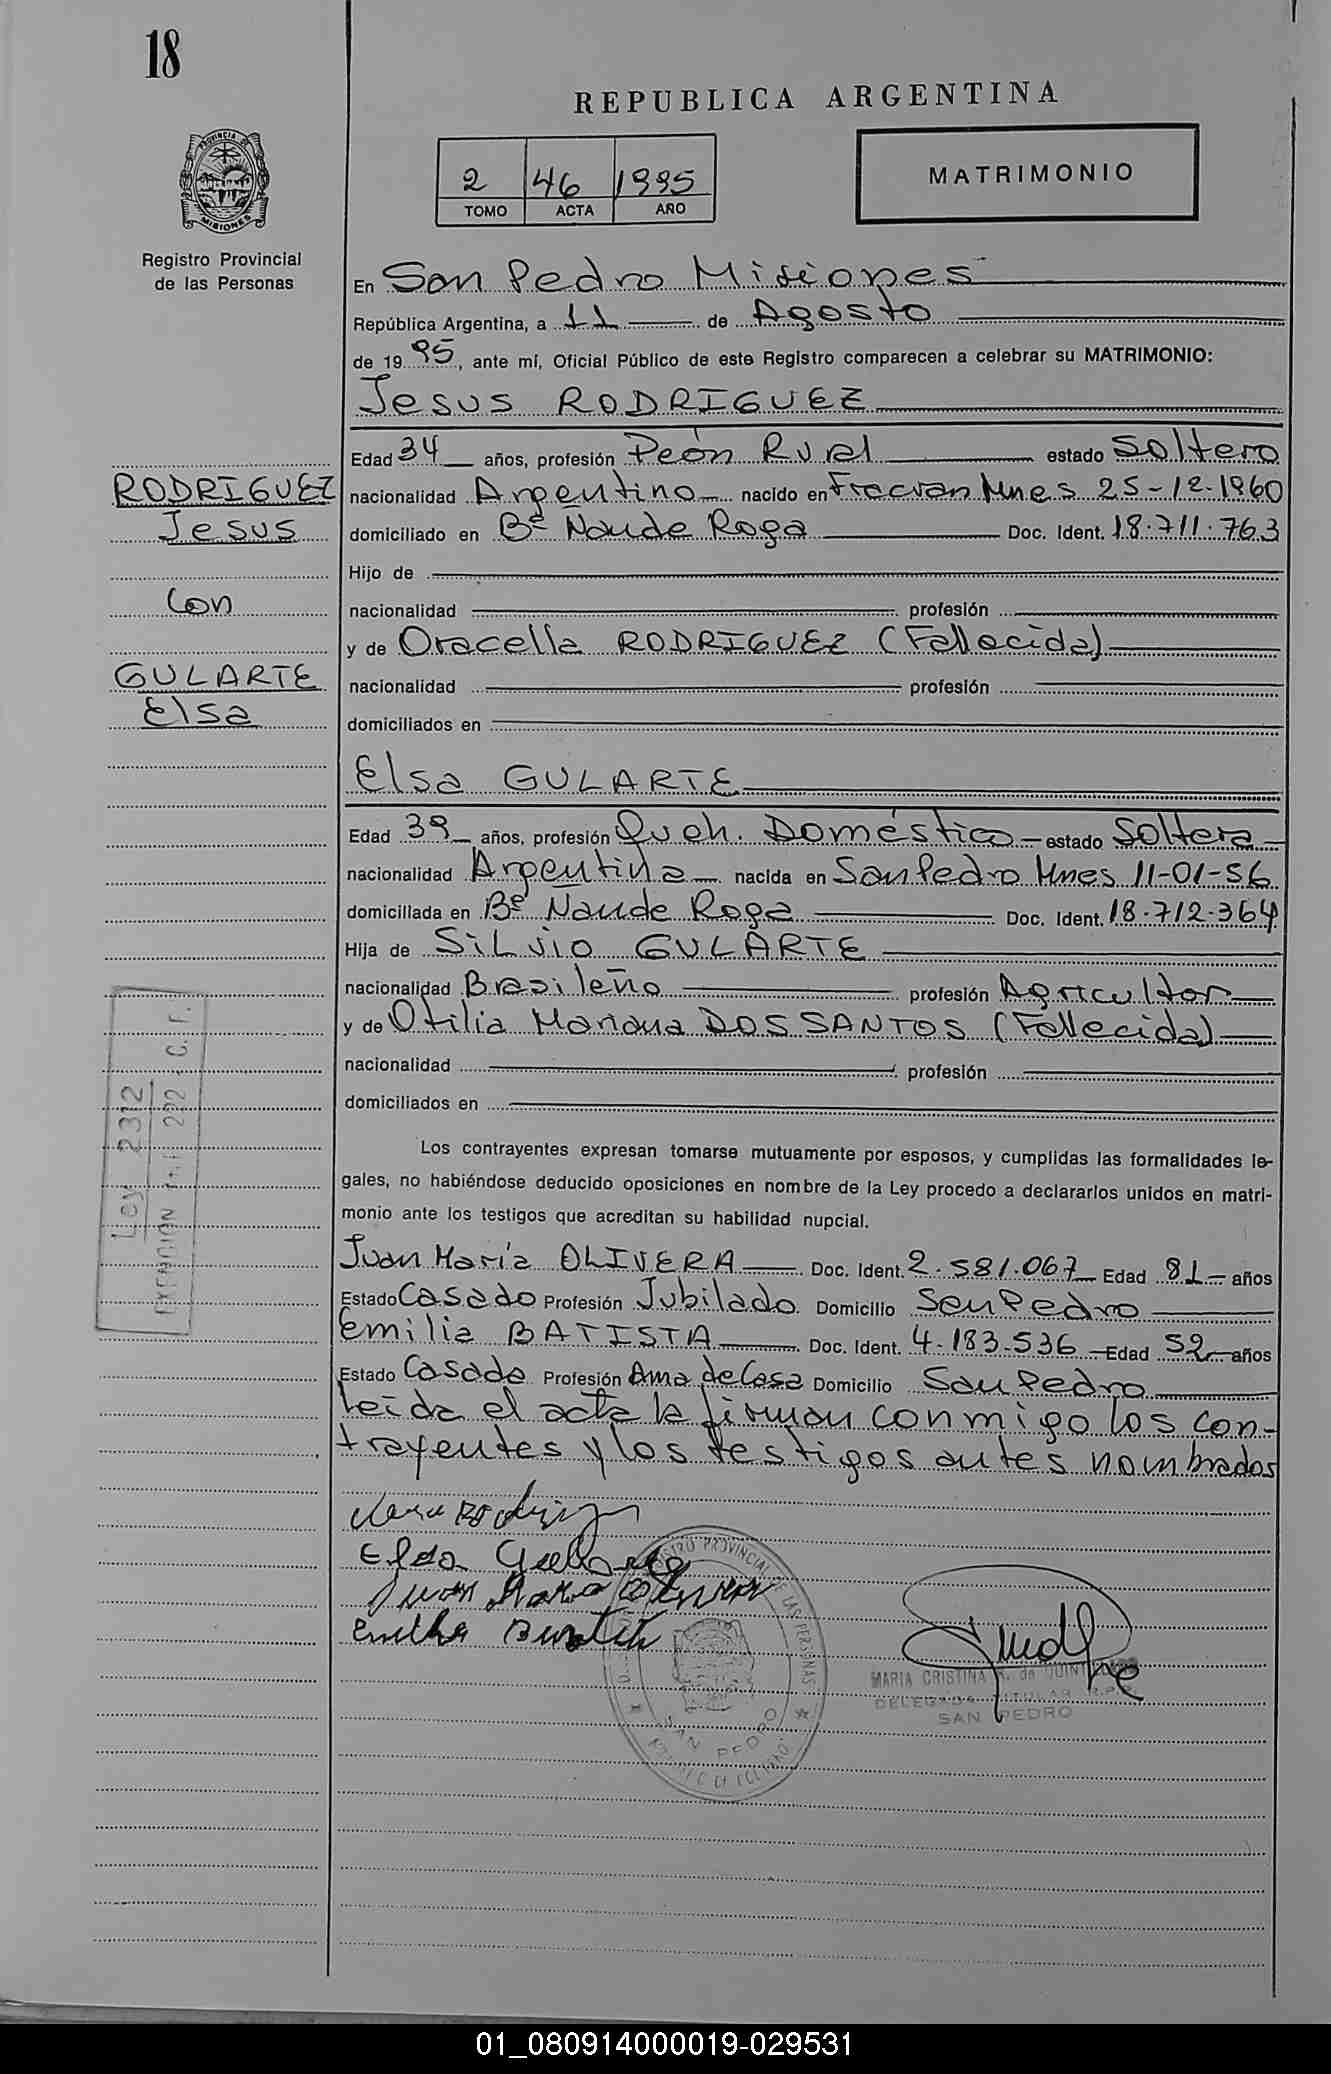 18
REPUBLICA ARGENTINA
PROVINCIA DE MISIONES
Registro Provincial
de las Personas
2 46 1995
TOMO ACTA AÑO
MATRIMONIO
En San Pedro Misiones
República Argentina, a 11 de Agosto
de 1995, ante mí, Oficial Público de este Registro comparecen a celebrar su MATRIMONIO:
Jesus RODRIGUEZ
Edad 34 años, profesión Peón Rural estado Soltero
RODRIGUEZ
Jesus
Con
GULARTE
Elsa
nacionalidad Argentino nacido en Fracran Mnes 25-12-1960
domiciliado en Bº Ñande Roga Doc. Ident. 18.711.763
Hijo de
nacionalidad profesión
y de Oracella RODRIGUEZ (Fallecida)
nacionalidad profesión
domiciliados en
Elsa GULARTE
Edad 39 años, profesión Queh. Doméstico estado Soltera
nacionalidad Argentina nacida en San Pedro Mnes 11-01-56
domicillada en Bº Ñande Roga Doc. Ident. 18.712.364
Hija de SiLvio GULARTE
nacionalidad Brasileño profesión Agricultor
y de Otilia Mariana DOS SANTOS (Fallecida)
nacionalidad profesión
domiciliados en
Ley 2312
EXENCION 222 C. F.
Los contrayentes expresan tomarse mutuamente por esposos, y cumplidas las formalidades le-
gales, no habiéndose deducido oposiciones en nombre de la Ley procedo a declararlos unidos en matri-
monio ante los testigos que acreditan su habilidad nupcial.
Juan María OLIVERA Doc. Ident. 2.581.067 Edad 81 años
Estado Casado Profesión Jubilado Domicilio San Pedro
Emilia BATISTA Doc. Ident. 4.183.536 Edad 52 años
Estado Casada Profesión Ama de Casa Domicilio San Pedro
Leída el acta la firman conmigo los con-
trayentes y los testigos antes nombrados
Rodriguez
Elsa Gularte
Juan Maria Olivera
Emilia Batista
REGISTRO PROVINCIAL DE LAS PERSONAS
SAN PEDRO
MARIA CRISTINA de QUINT
DELEGADA TITULAR R.P.
SAN PEDRO
01_080914000019-029531